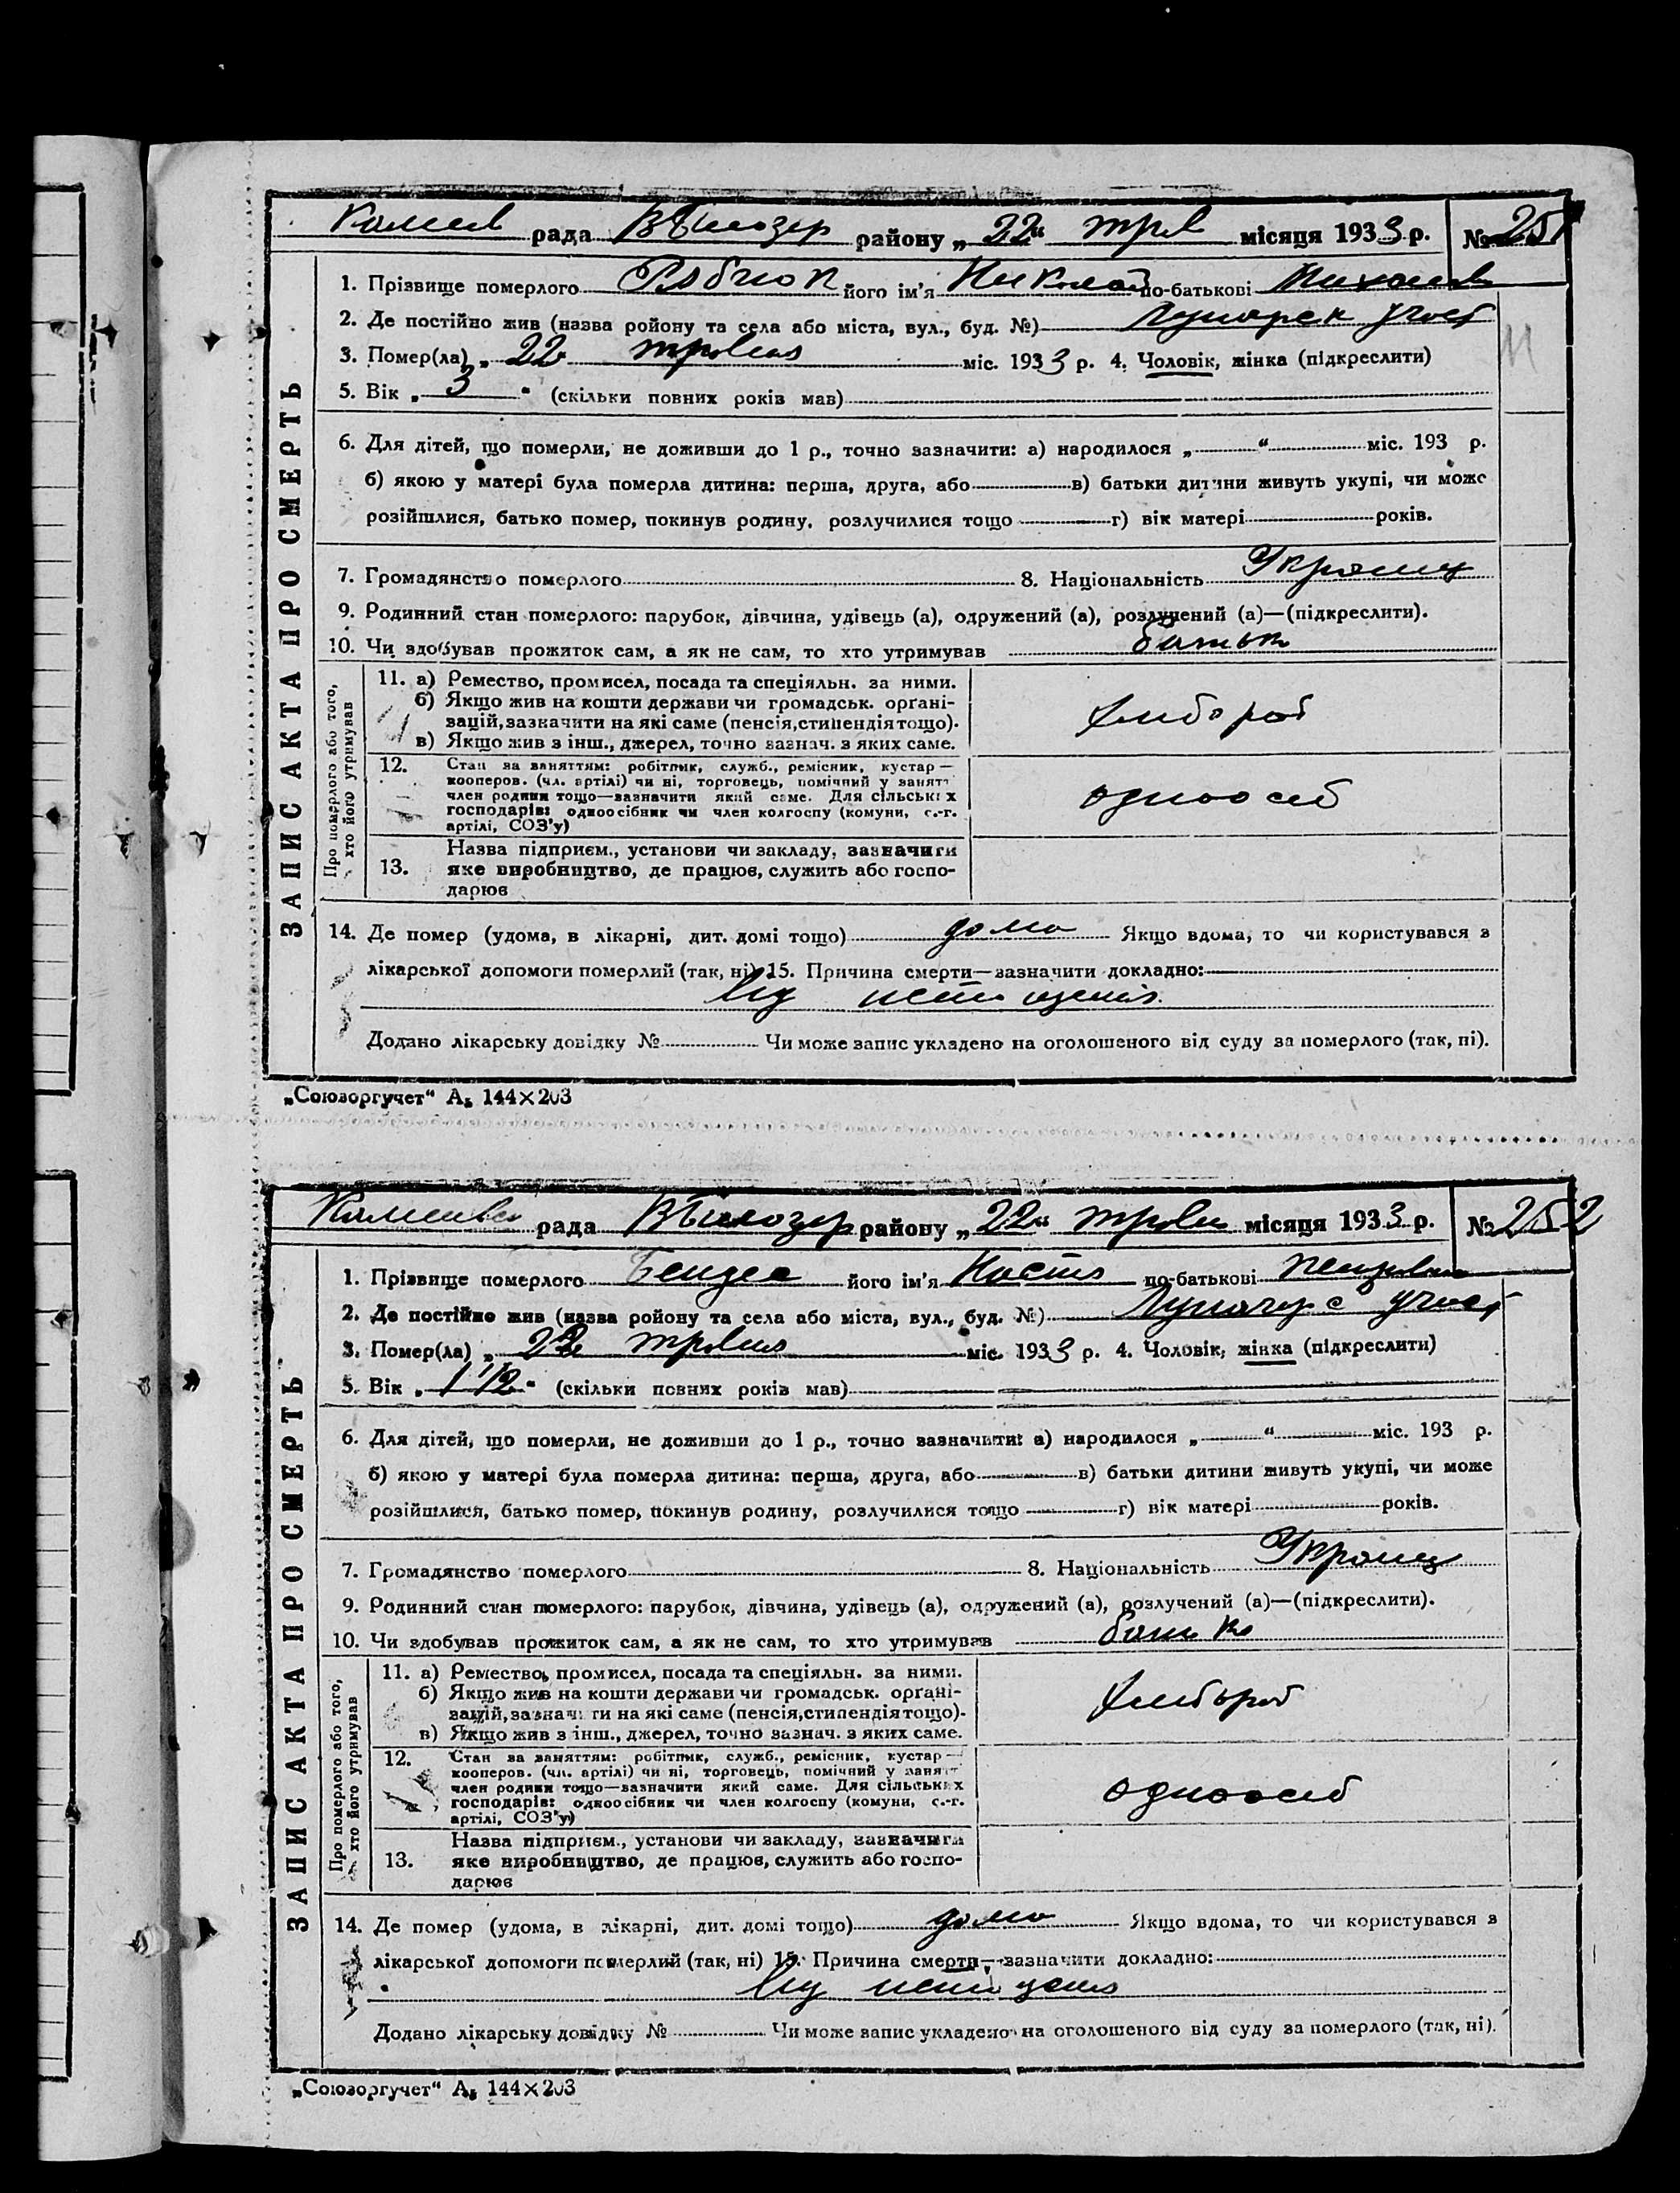 рада району „ 22 “ трав місяця 1933 р. № 251
ЗАПИС АКТА ПРО СМЕРТЬ
1. Прізвище померлого його ім'я Николай по-батькові
2. Де постійно жив (назва ройону та села або міста, вул., буд. №)
3. Помер(ла) „ 22 травня міс. 1933 р. 4. Чоловік, жінка (підкреслити)
5. Вік „ 3 “ (скільки повних років мав)
6. Для дітей, що померли, не доживши до 1 р., точно зазначити: а) народилося „ “ міс. 193 р.
б) якою у матері була померла дитина: перша, друга, або в) батьки дитини живуть укупі, чи може
розійшлися, батько помер, покинув родину, розлучилися тощо г) вік матері років.
7. Громадянство померлого 8. Національність Украинц
9. Родинний стан померлого: парубок, дівчина, удівець (а), одружений (а), розлучений (а)—(підкреслити).
10. Чи здобував прожиток сам, а як не сам, то хто утримував батько
Про померлого або того, хто його утримував
11. а) Ремество, промисел, посада та спеціяльн. за ними.
б) Якщо жив на кошти держави чи громадськ. орґані-
зацій, зазначити на які саме (пенсія, стипендія тощо).
в) Якщо жив з інш., джерел, точно зазнач. з яких саме.
хлибороб
12. Стан за заняттям: робітник, служб., ремісник, кустар—
кооперов. (чл. артілі) чи ні, торговець, помічний у занятт
член родини тощо—зазначити який саме. Для сільських
господарів: одноосібник чи член колгоспу (комуни, с.-г.
артілі, СОЗ'у)
одноосіб
13. Назва підприєм., установи чи закладу, зазначити
яке виробництво, де працює, служить або госпо-
дарює
14. Де помер (удома, в лікарні, дит. домі тощо) дома Якщо вдома, то чи користувався з
лікарської допомоги померлий (так, ні) 15. Причина смерти—зазначити докладно:
від истощения
Додано лікарську довідку № Чи може запис укладено на оголошеного від суду за померлого (так, ні).
„Союзоргучет“ А5 144×203
рада району „ 22 “ травн місяця 1933 р. № 252
ЗАПИС АКТА ПРО СМЕРТЬ
1. Прізвище померлого його ім'я Настя по-батькові
2. Де постійно жив (назва ройону та села або міста, вул., буд. №)
3. Помер(ла) „ 22 травня міс. 1933 р. 4. Чоловік, жінка (підкреслити)
5. Вік „ 1 1/2 “ (скільки повних років мав)
6. Для дітей, що померли, не доживши до 1 р., точно зазначити: а) народилося „ “ міс. 193 р.
б) якою у матері була померла дитина: перша, друга, або в) батьки дитини живуть укупі, чи може
розійшлися, батько помер, покинув родину, розлучилися тощо г) вік матері років.
7. Громадянство померлого 8. Національність Украинц
9. Родинний стан померлого: парубок, дівчина, удівець (а), одружений (а), розлучений (а)—(підкреслити).
10. Чи здобував прожиток сам, а як не сам, то хто утримував батько
Про померлого або того, хто його утримував
11. а) Ремество, промисел, посада та спеціяльн. за ними.
б) Якщо жив на кошти держави чи громадськ. орґані-
зацій, зазначити на які саме (пенсія, стипендія тощо).
в) Якщо жив з інш., джерел, точно зазнач. з яких саме.
хлибороб
12. Стан за заняттям: робітник, служб., ремісник, кустар—
кооперов. (чл. артілі) чи ні, торговець, помічний у занятт
член родини тощо—зазначити який саме. Для сільських
господарів: одноосібник чи член колгоспу (комуни, с.-г.
артілі, СОЗ'у)
одноосіб
13. Назва підприєм., установи чи закладу, зазначити
яке виробництво, де працює, служить або госпо-
дарює
14. Де помер (удома, в лікарні, дит. домі тощо) дома Якщо вдома, то чи користувався з
лікарської допомоги померлий (так, ні) 15. Причина смерти—зазначити докладно:
від истощения
Додано лікарську довідку № Чи може запис укладено на оголошеного від суду за померлого (так, ні).
„Союзоргучет“ А5 144×203